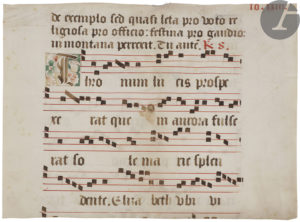 de exemplo sed quasi leta pro voto re
ligiosa pro officio: festina pro gaudio:
in montana perrexit. Tu aute. ℟ 8.
Thro num lu cis prospe
xe rat que in aurora fulse
rat so le ma rie splen
dente. Eliza beth vbi vi